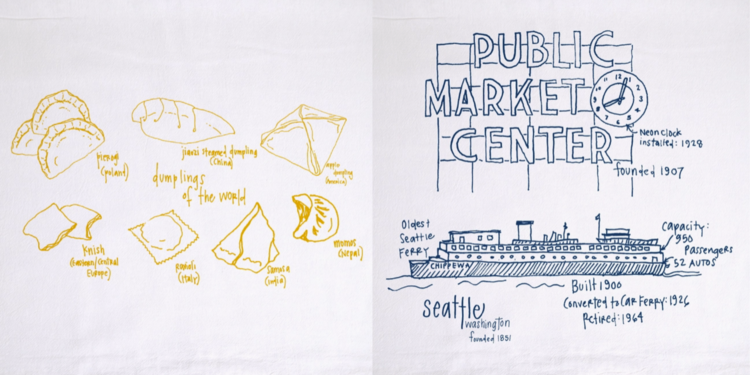 pierogi
(poland)
jiaozi steamed dumpling
(China)
apple
dumpling
(America)
dumplings
of the world
Knish
(Eastern/Central
Europe)
Ravioli
(Italy)
Samosa
(india)
momos
(Nepal)
PUBLIC
MARKET
CENTER
12 1 2 3 4 5 6 7 8 9 10 11
Neon clock
installed: 1928
founded 1907
Oldest
Seattle
FERRY
CHIPPEWA
Capacity:
950
Passengers
52 AUTOS
Built 1900
Converted to Car Ferry: 1926
Retired: 1964
seattle
washington
founded 1851